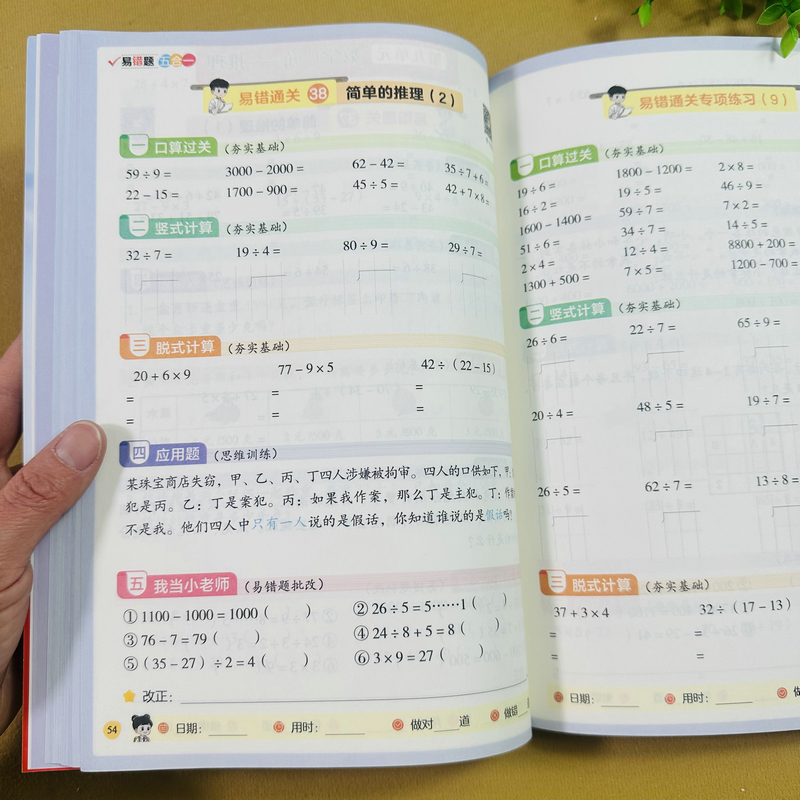 易错题 五合一
易错通关 38 简单的推理（2）
一 口算过关（夯实基础）
59÷9= 3000－2000= 62－42= 35÷7+6=
22－15= 1700－900= 45÷5= 42+7×8=
二 竖式计算（夯实基础）
32÷7= 19÷4= 80÷9= 29÷7=
三 脱式计算（夯实基础）
20+6×9 77－9×5 42÷（22－15）
= = =
= = =
四 应用题（思维训练）
某珠宝商店失窃，甲、乙、丙、丁四人涉嫌被拘审。四人的口供如下，甲：
犯是丙。乙：丁是案犯。丙：如果我作案，那么丁是主犯。丁：作案
不是我。他们四人中只有一人说的是假话，你知道谁说的是假话吗？
五 我当小老师（易错题批改）
①1100－1000=1000（ ） ②26÷5=5……1（ ）
③76－7=79（ ） ④24÷8+5=8（ ）
⑤（35－27）÷2=4（ ） ⑥3×9=27（ ）
改正：
54 日期： 用时： 做对 道 做错
易错通关专项练习（9）
一 口算过关（夯实基础）
19÷6= 1800－1200= 2×8=
16÷2= 19÷5= 46÷9=
1600－1400= 59÷7= 7×2=
51÷6= 34÷7= 14÷5=
2×4= 12÷4= 8800+200=
1300+500= 7×5= 1200－700=
二 竖式计算（夯实基础）
26÷6= 22÷7= 65÷9=
20÷4= 48÷5= 19÷7=
26÷5= 62÷7= 13÷8=
三 脱式计算（夯实基础）
37+3×4 32÷（17－13）
= =
= =
日期： 用时：